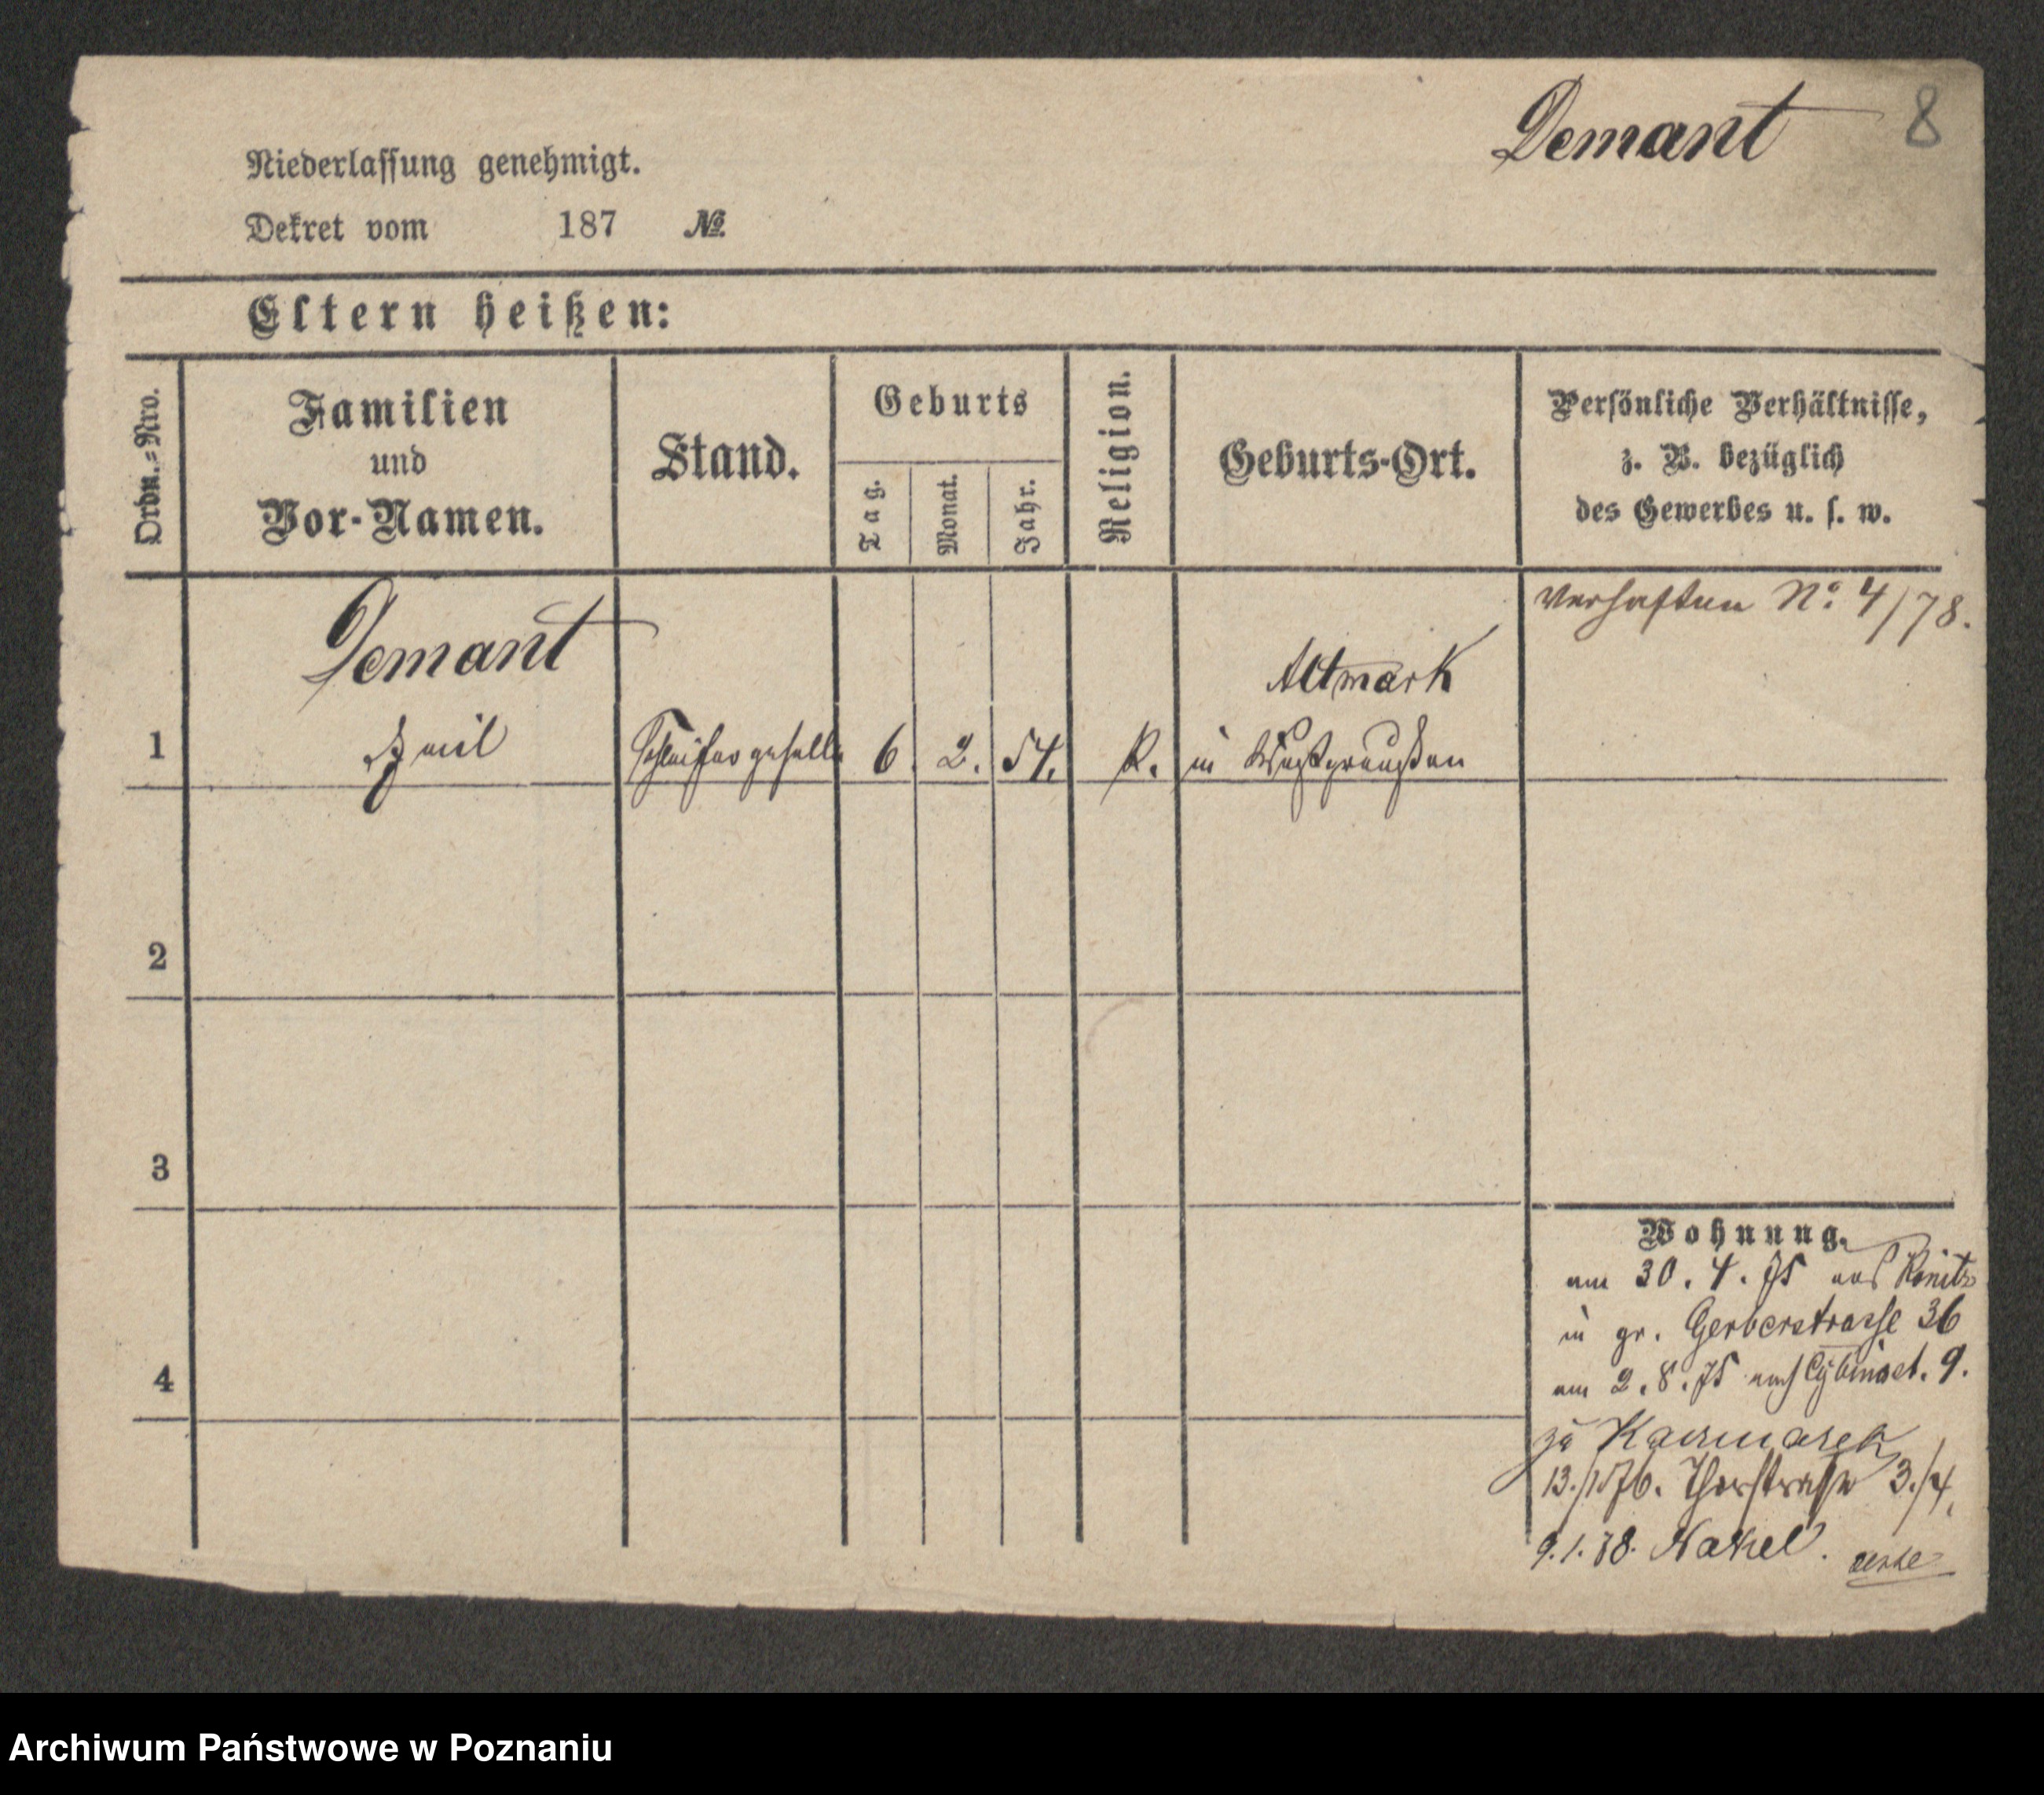 Demant 8
Niederlassung genehmigt.
Dekret vom 187 №
Eltern heißen:
Ordn.-Nro.
Familien
und
Vor-Namen.
Stand.
Geburts
Tag.
Monat.
Jahr.
Religion.
Geburts-Ort.
Persönliche Verhältnisse,
z. B. bezüglich
des Gewerbes u. s. w.
Verhaften No. 4/78.
Demant
Altmark
1 Schleifergeselle 6. 2. 54. K. in Westpreußen
2
3
4
Wohnung.
am 30. 4. 75 aus Konitz
in gr. Gerberstrasse 36
am 2. 8. 75 nach Cybinast. 9.
zu Kaczmarek
13./1 76. Thorstrasse 3./4.
9. 1. 78. Nakel.
Archiwum Państwowe w Poznaniu